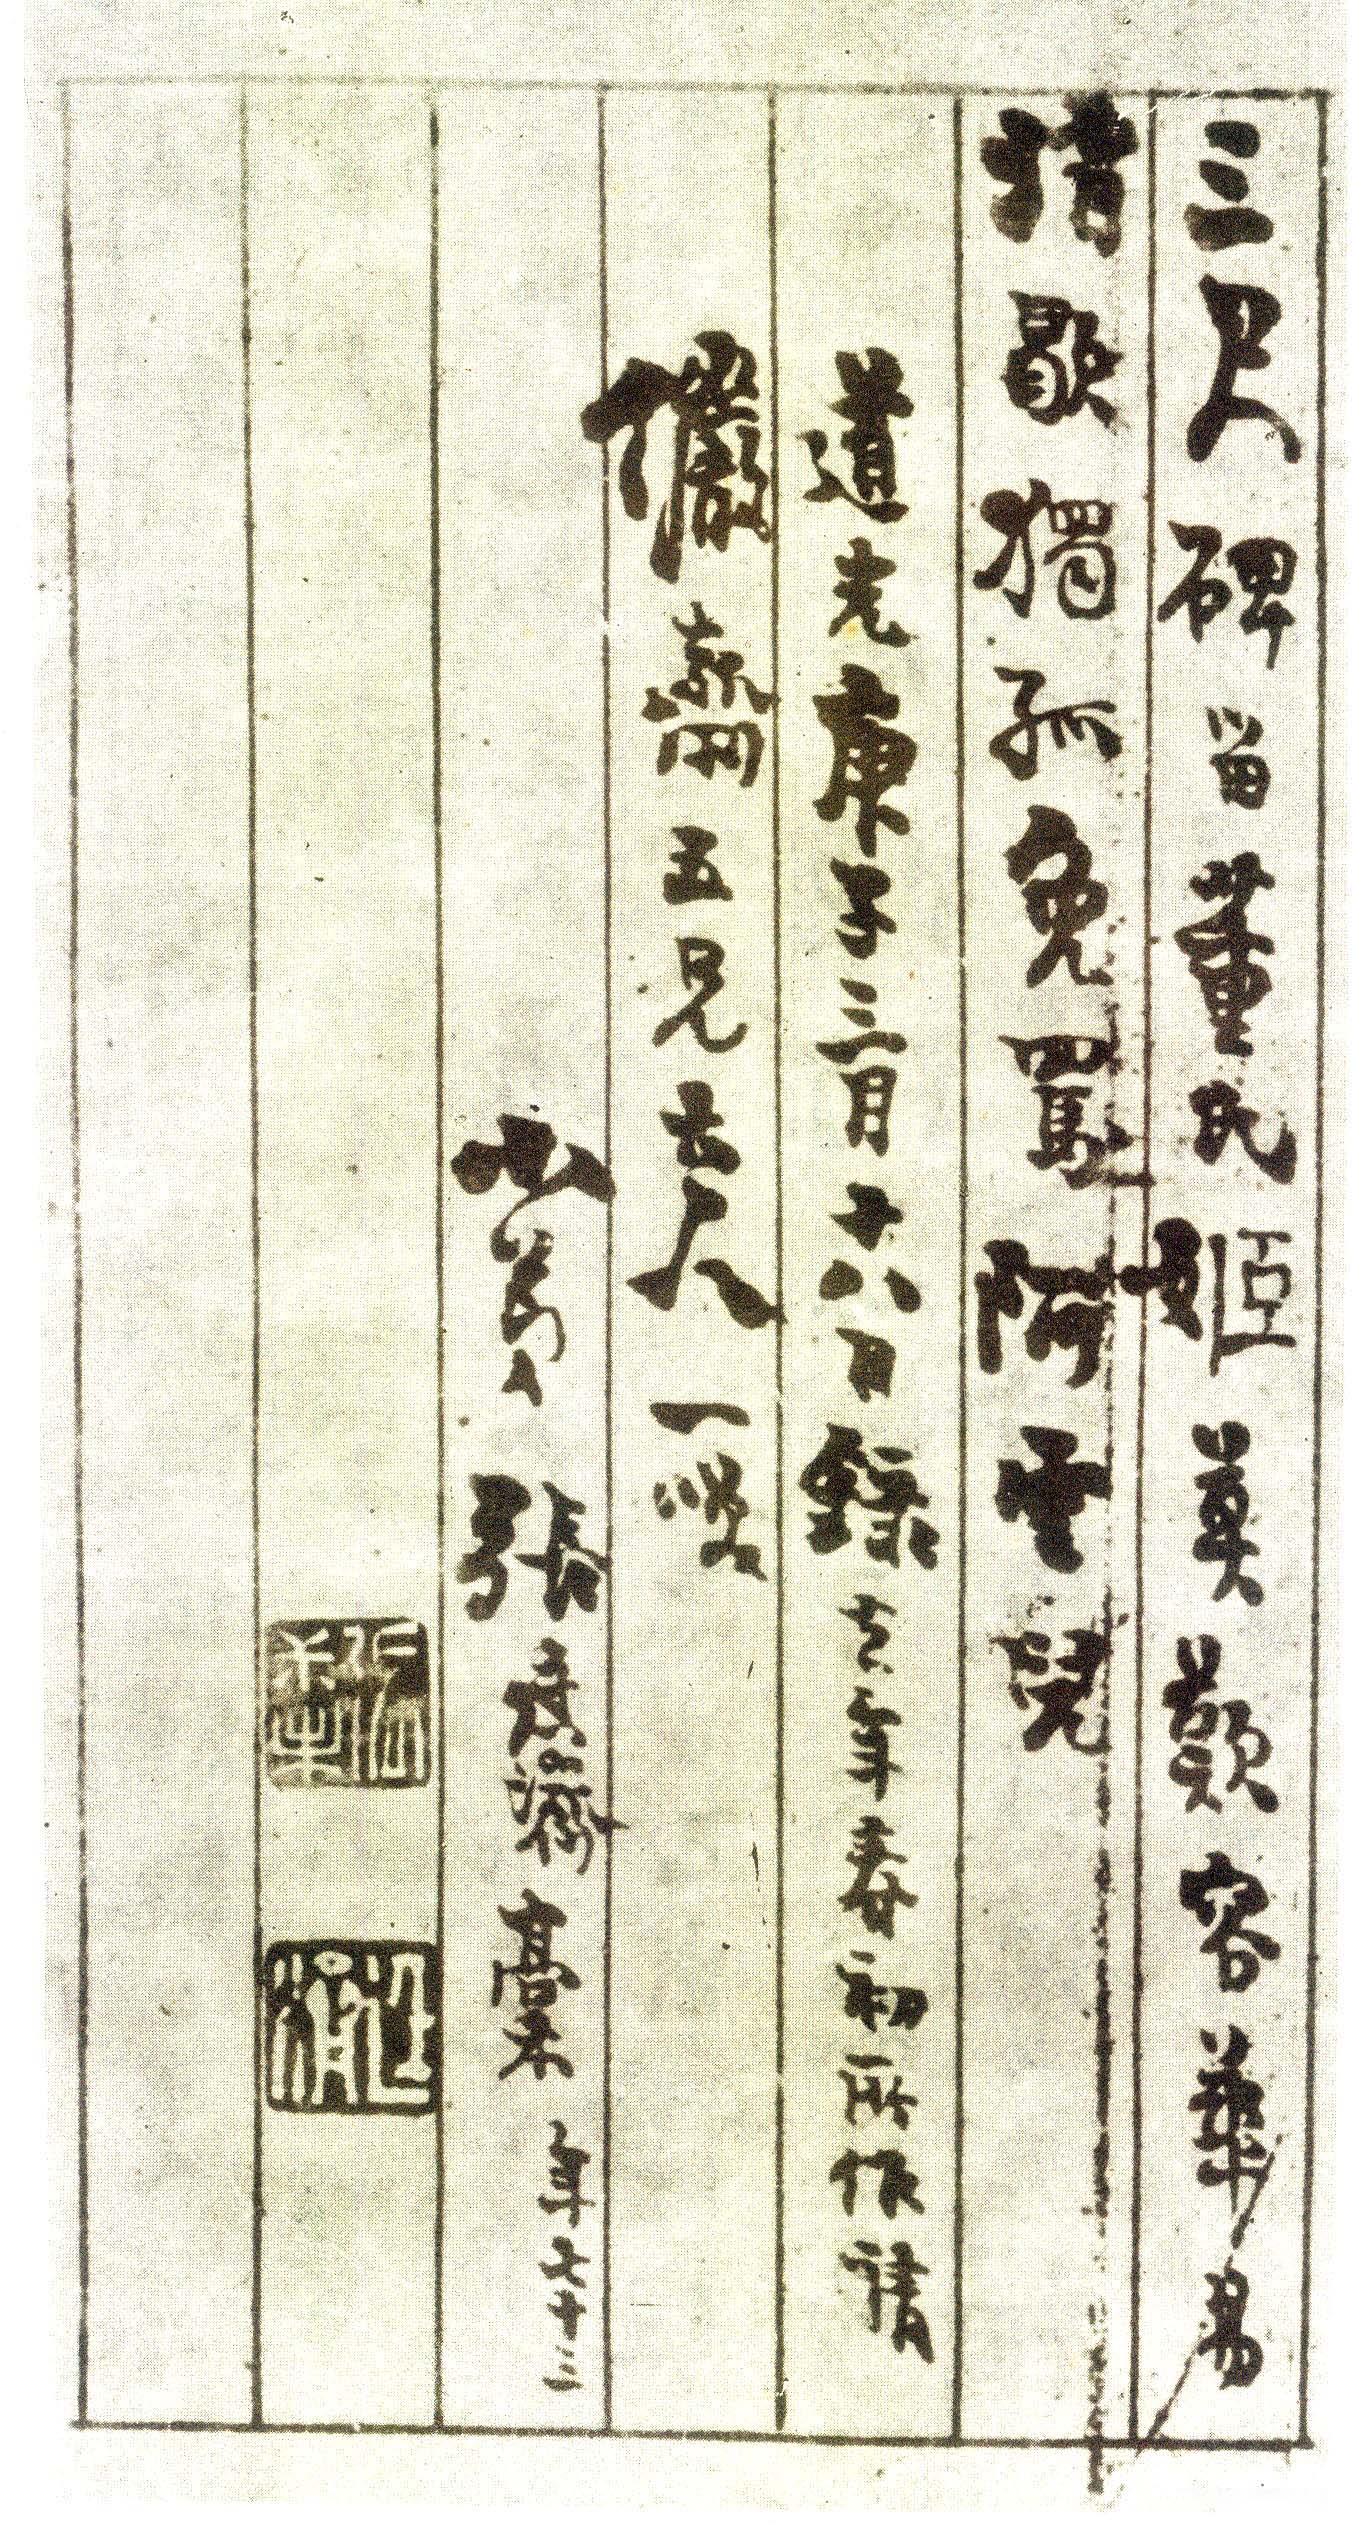 三尺碑留董氏姬莫歎容華易
消歇獨孤免罵阿雲兒
道光庚子三月十八日錄去年春初所作請
儼齋五兄大人一哂
張廷濟稾年七十三